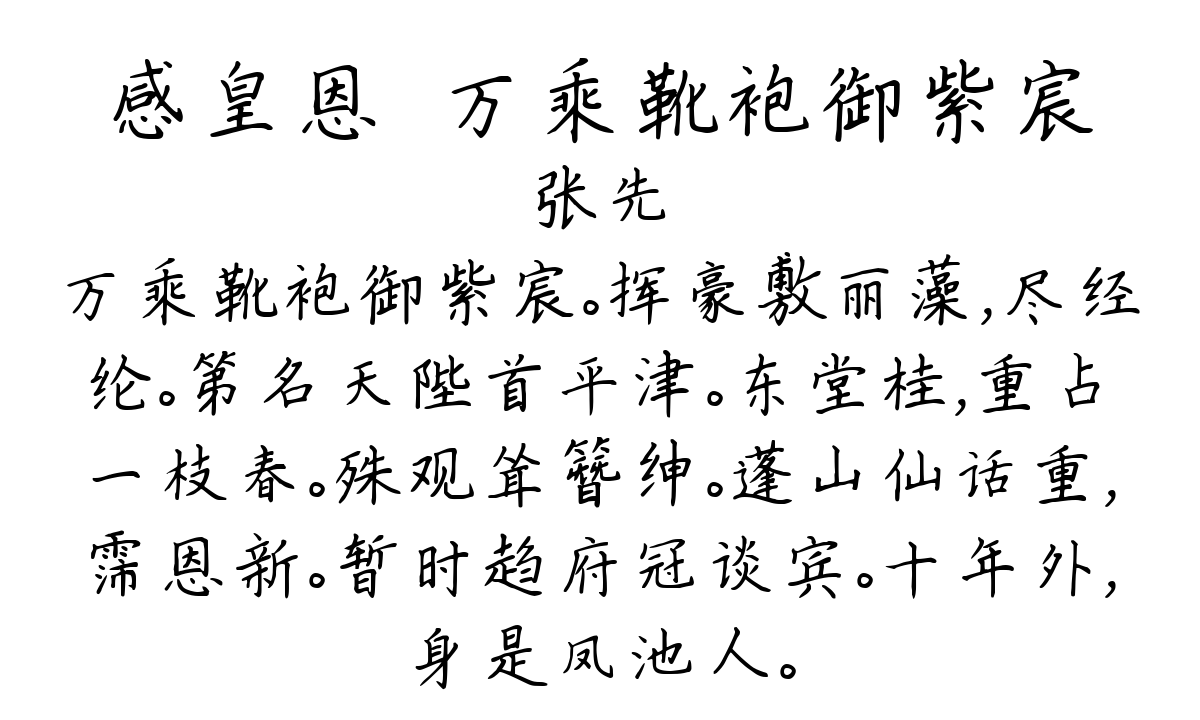 感皇恩 万乘靴袍御紫宸
张先
万乘靴袍御紫宸。挥豪敷丽藻,尽经
纶。第名天陛首平津。东堂桂,重占
一枝春。殊观耸簪绅。蓬山仙话重,
霈恩新。暂时趋府冠谈宾。十年外,
身是凤池人。